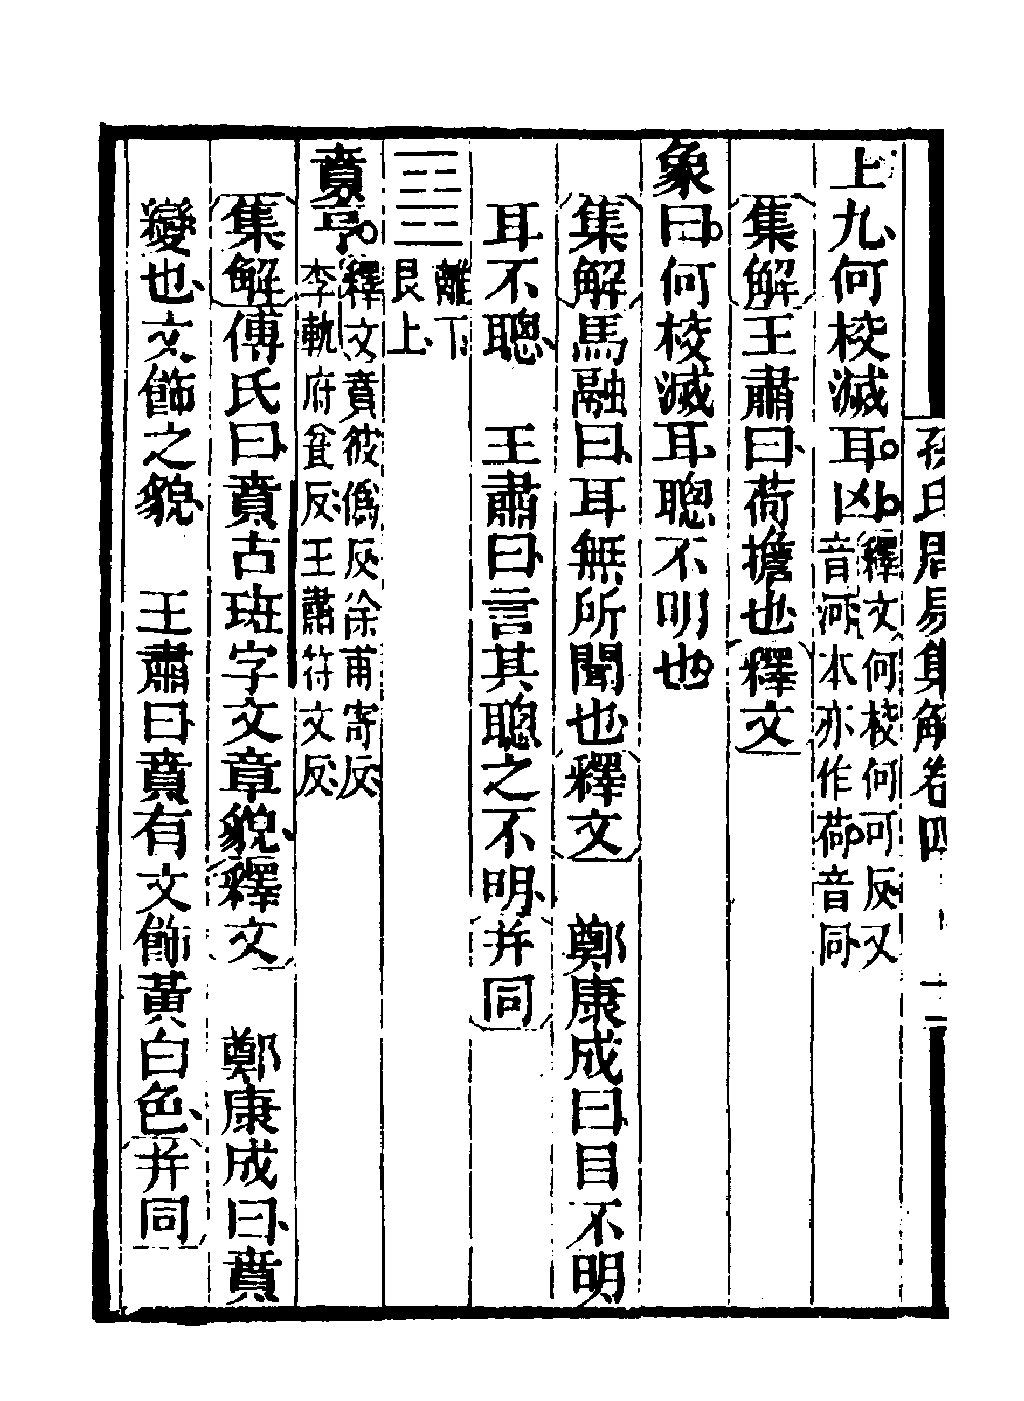 孫氏周易集解卷四
上九、何校滅耳。凶。釋文何校何可反、又
音河、本亦作荷、音同
集解王肅曰、荷擔也釋文
象曰。何校滅耳、聰不明也
集解馬融曰、耳無所聞也釋文　鄭康成曰、目不明
耳不聰、　王肅曰、言其聰之不明、并同
䷕離下、
艮上、
賁亨。釋文賁彼僞反徐甫寄反、
李軌府瓫反、王肅符文反、
集解傅氏曰、賁古班字文章貌、釋文　鄭康成曰、賁
變也、文、飾之貌、　王肅曰、賁有文飾黃白色、并同